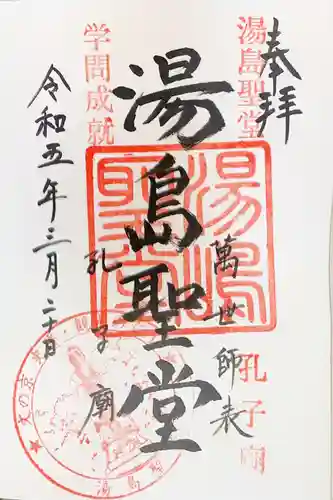 奉拝
湯島聖堂
孔子廟
萬世師表
湯島聖堂
湯島聖堂
孔子廟
学問成就
令和五年三月二十日
湯島聖